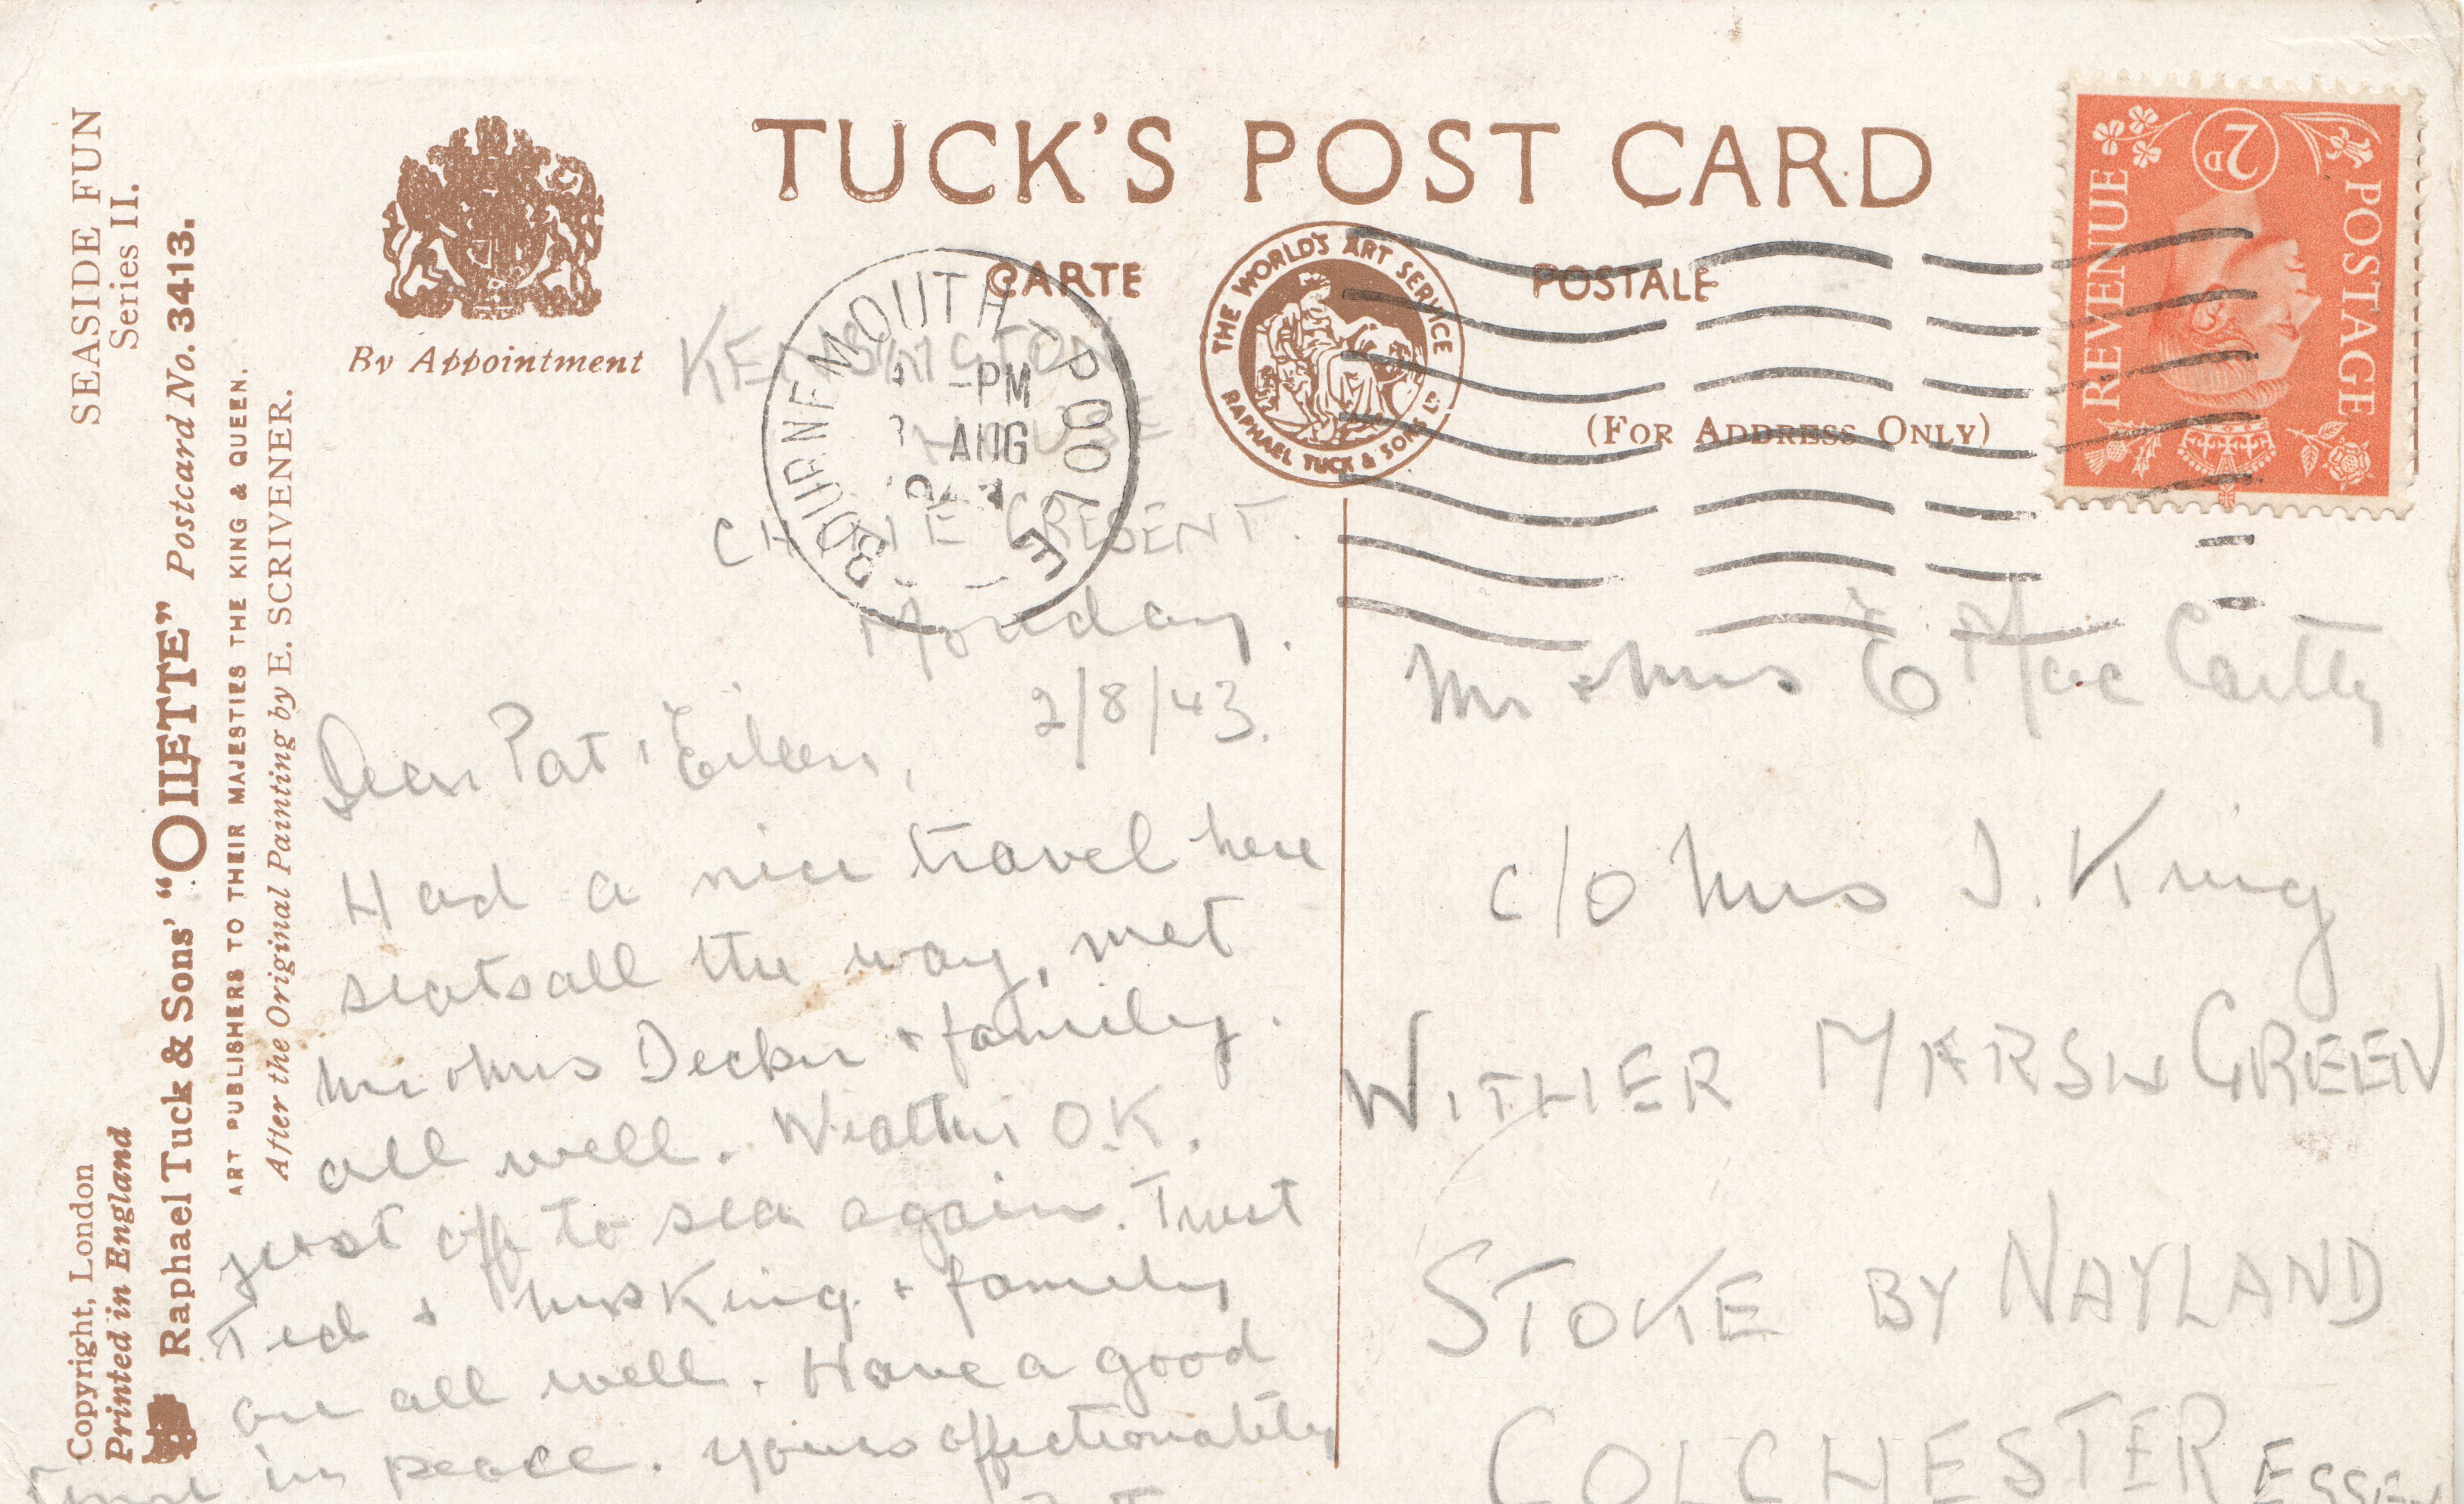 SEASIDE FUN
Series II.
Raphael Tuck & Sons' "OILETTE" Postcard No. 3413.
ART PUBLISHERS TO THEIR MAJESTIES THE KING & QUEEN.
After the Original Painting by E. SCRIVENER.
Copyright, London
Printed in England
By Appointment
TUCK'S POST CARD
CARTE POSTALE
THE WORLD'S ART SERVICE
RAPHAEL TUCK & SONS
(FOR ADDRESS ONLY)
BOURNEMOUTH POOLE
-PM
AUG
REVENUE
2D
POSTAGE
KENSINGTON
HOUSE
CHINE CRESENT.
Monday.
2/8/43.
Dear Pat & Eileen,
Had a nice travel here
seats all the way, met
Mr & Mrs Decker & family.
all well. Weather O.K.
just off to sea again. Trust
Ted & Mrs King & family
are all well. Have a good
time in peace. Yours affectionately
Mr & Mrs E. Mac Carthy
c/o Mrs J. King
WITHER MARSH GREEN
STOKE BY NAYLAND
COLCHESTER ESSEX